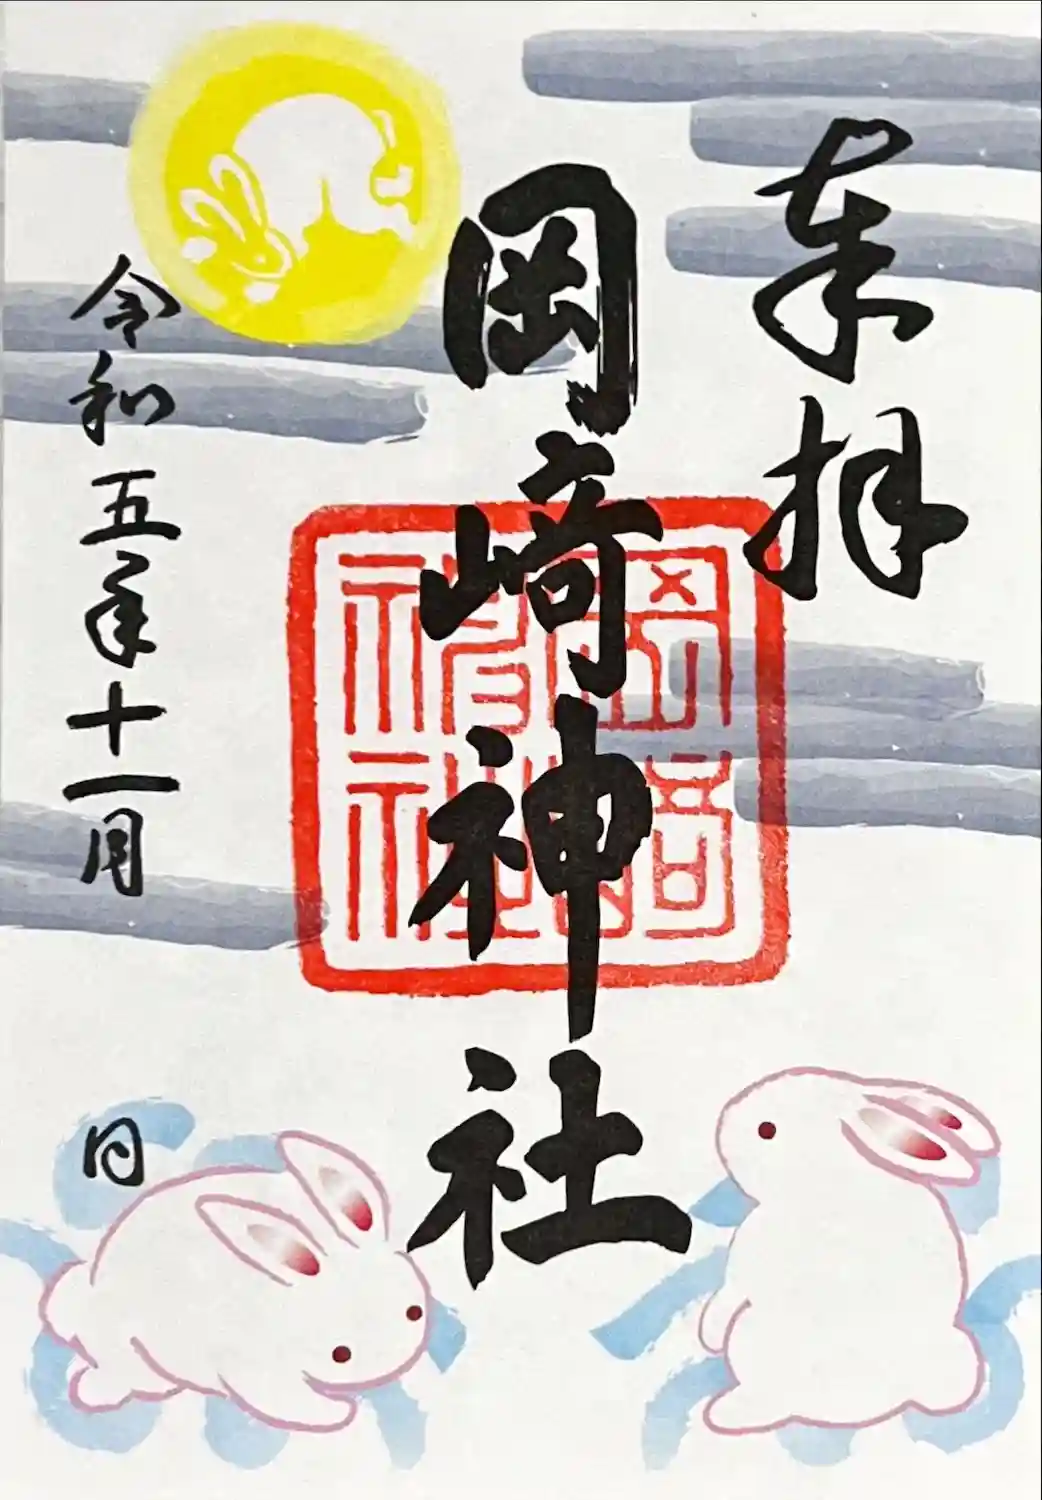 奉拝
岡崎神社
岡崎神社
令和五年十一月 日